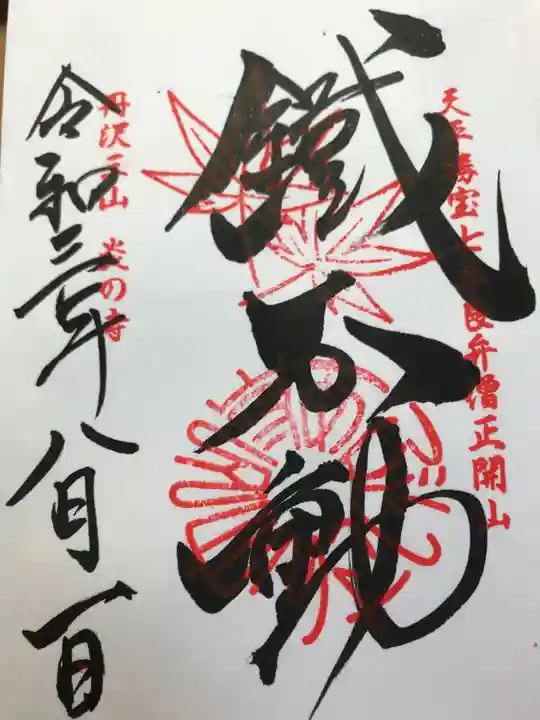 天平勝宝七年良弁僧正開山
鐵不動
丹沢大山 炎の寺
令和三年八月一日